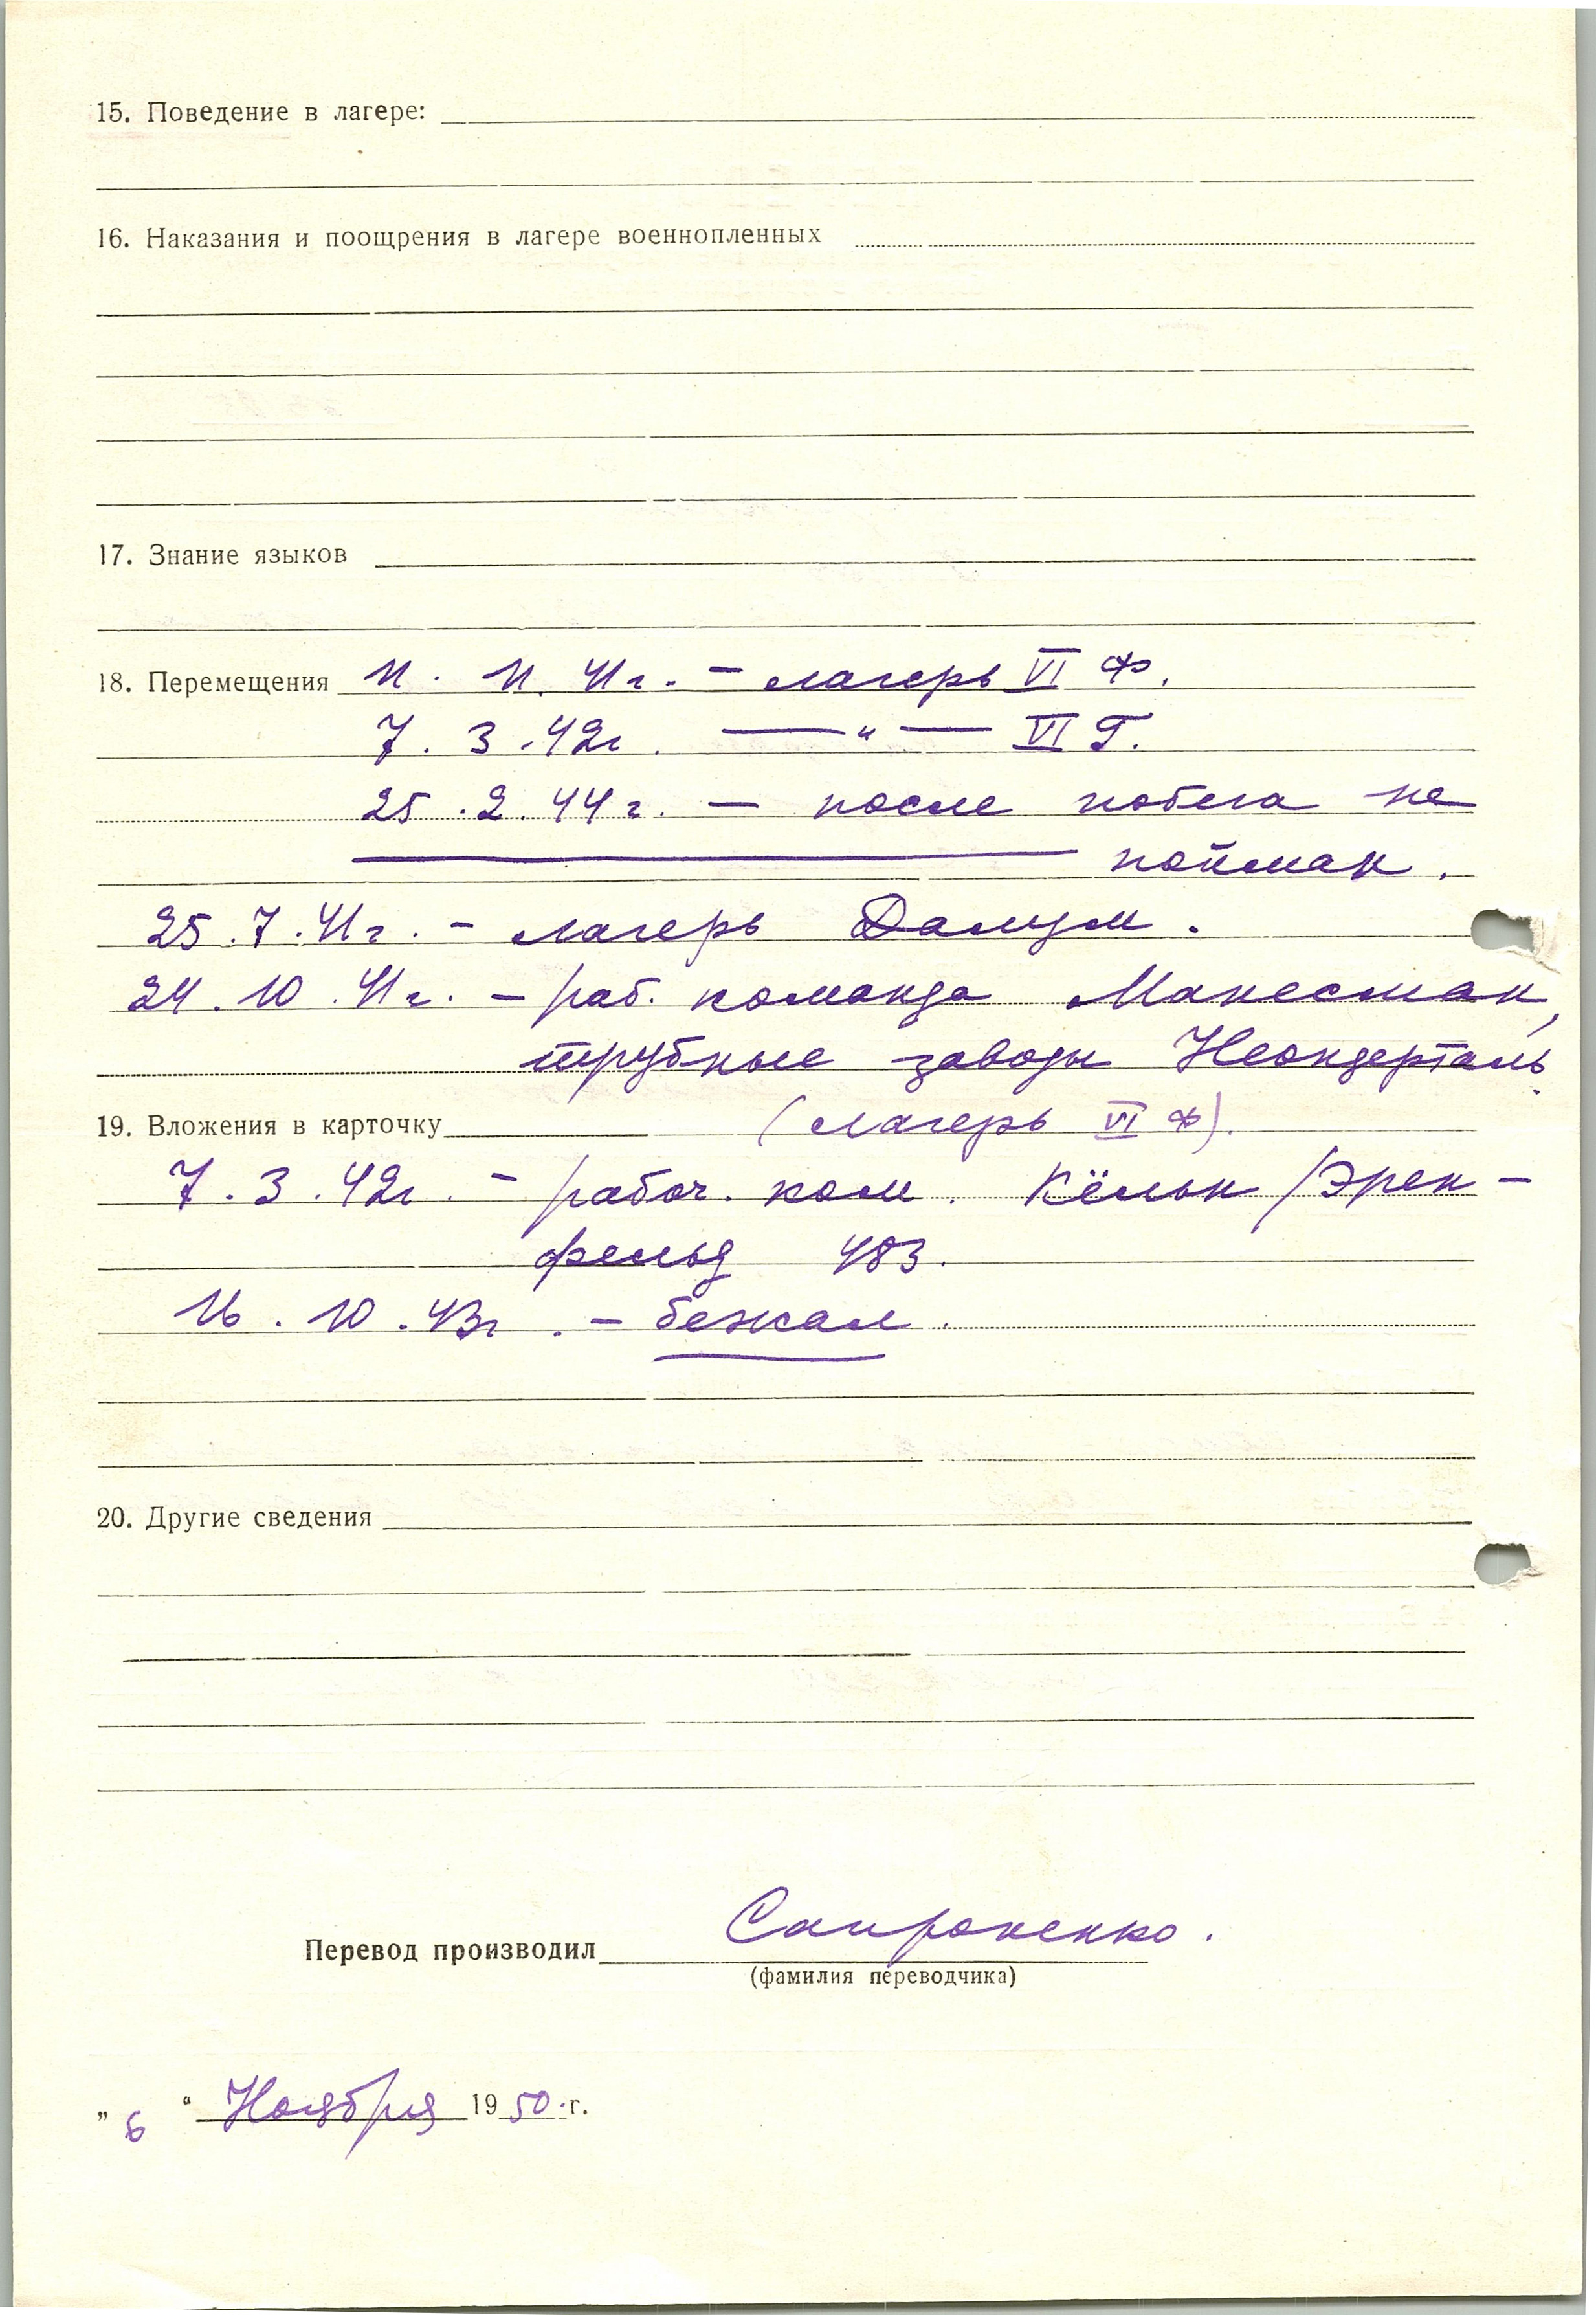 15. Поведение в лагере:
16. Наказания и поощрения в лагере военнопленных
17. Знание языков
18. Перемещения 11. 11. 41г. – лагерь VI Ф.
7. 3. 42г. — " — VI Г.
25. 2. 44г. — после побега не
пойман.
25. 7. 41г. – лагерь Далум.
24. 10. 41г. – раб. команда Манесман,
трубные заводы Неандерталь
19. Вложения в карточку (лагерь VI Ф).
7. 3. 42г. – рабоч. ком. Кёльн / Эрен-
фельд 483.
16. 10. 43г. – бежал.
20. Другие сведения
Перевод производил Сапроненко.
(фамилия переводчика)
„ 6 “ Ноября 1950.г.